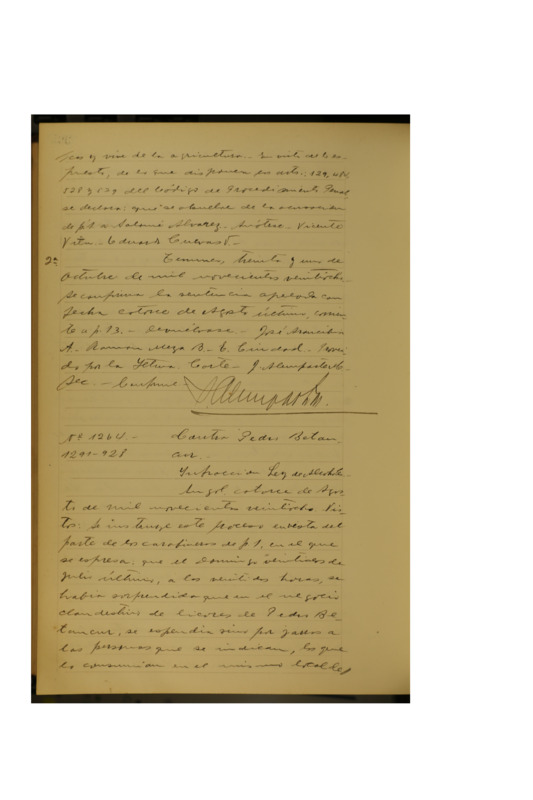 y vive de la agricultura.. En vista de lo ex-
puesto, de lo que disponen en arts.: 129,
528 y 529 del Código de Procedimiento Penal
se declara: que se absuelve de la acusación
de p.1 a Salomé Alvarez.- Anótese.- Vicente
Eduardo Cuevas V.-
2a Temuco, treinta y uno de
Octubre de mil novecientos veintiocho.
Se confirma la sentencia apelada con
fecha catorce de Agosto último,
a p. 13.- Devuélvase.- José
A. Roman Meza B.- Ciudad.- Prove-
do por la Iltma. Corte.- J. Alemparte
Sec.- Conforme.-
Nº 1264.- Contra Pedro Betan-
1291-928 cur.-
Infracción Ley de Alcoholes
Angol, catorce de Agos-
to de mil novecientos veintiocho. Vis-
tos: Se instruyó este proceso en vista del
parte de los carabineros de p.1, en el que
se expresa: que el Domingo veintidos de
Julio último, a las veintidos horas, se
había sorprendido que en el negocio
clandestino de licores de Pedro Be-
tancur, se expendía vino por jarros a
las personas que se indican, los que
lo consumían en el mismo local